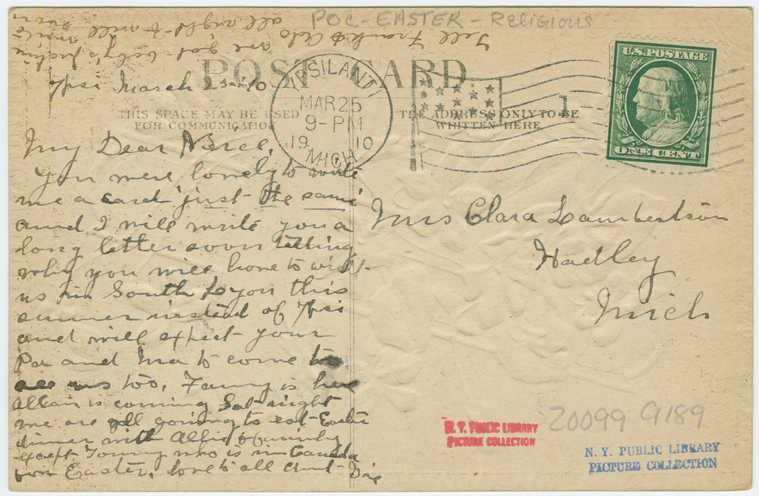 POC - EASTER - Religious
Tell Frank & Aolo
are
all right & will write
soon
POST CARD
Ypsi March 25-10
THIS SPACE MAY BE USED
FOR COMMUNICATION
THE ADDRESS ONLY TO BE
WRITTEN HERE
YPSILANTI
MAR 25
9-PM
1910
MICH
1
U.S. POSTAGE
ONE CENT
My Dear Niece,
You were lovely to write
me a card just the same
and I will write you a
long letter soon telling
why you will have to visit
us in South Lyon this
summer instead of Ypsi
and will expect your
Pa and Ma to come to
see us too. Fanny is here
Allan is coming Sat-night
we are all going to eat Easter
dinner with Allie & family
except Tommy who is in Canada
for Easter, love to all Aunt Die
Mrs Clara Lambertson
Hadley
Mich
N. Y. PUBLIC LIBRARY
PICTURE COLLECTION
20099 9189
N. Y. PUBLIC LIBRARY
PICTURE COLLECTION